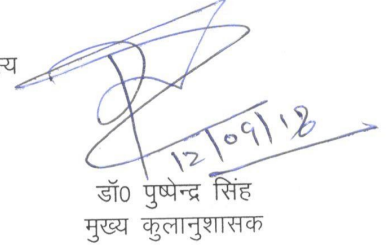 12/09/18
डॉ0 पुष्पेन्द्र सिंह
मुख्य कुलानुशासक